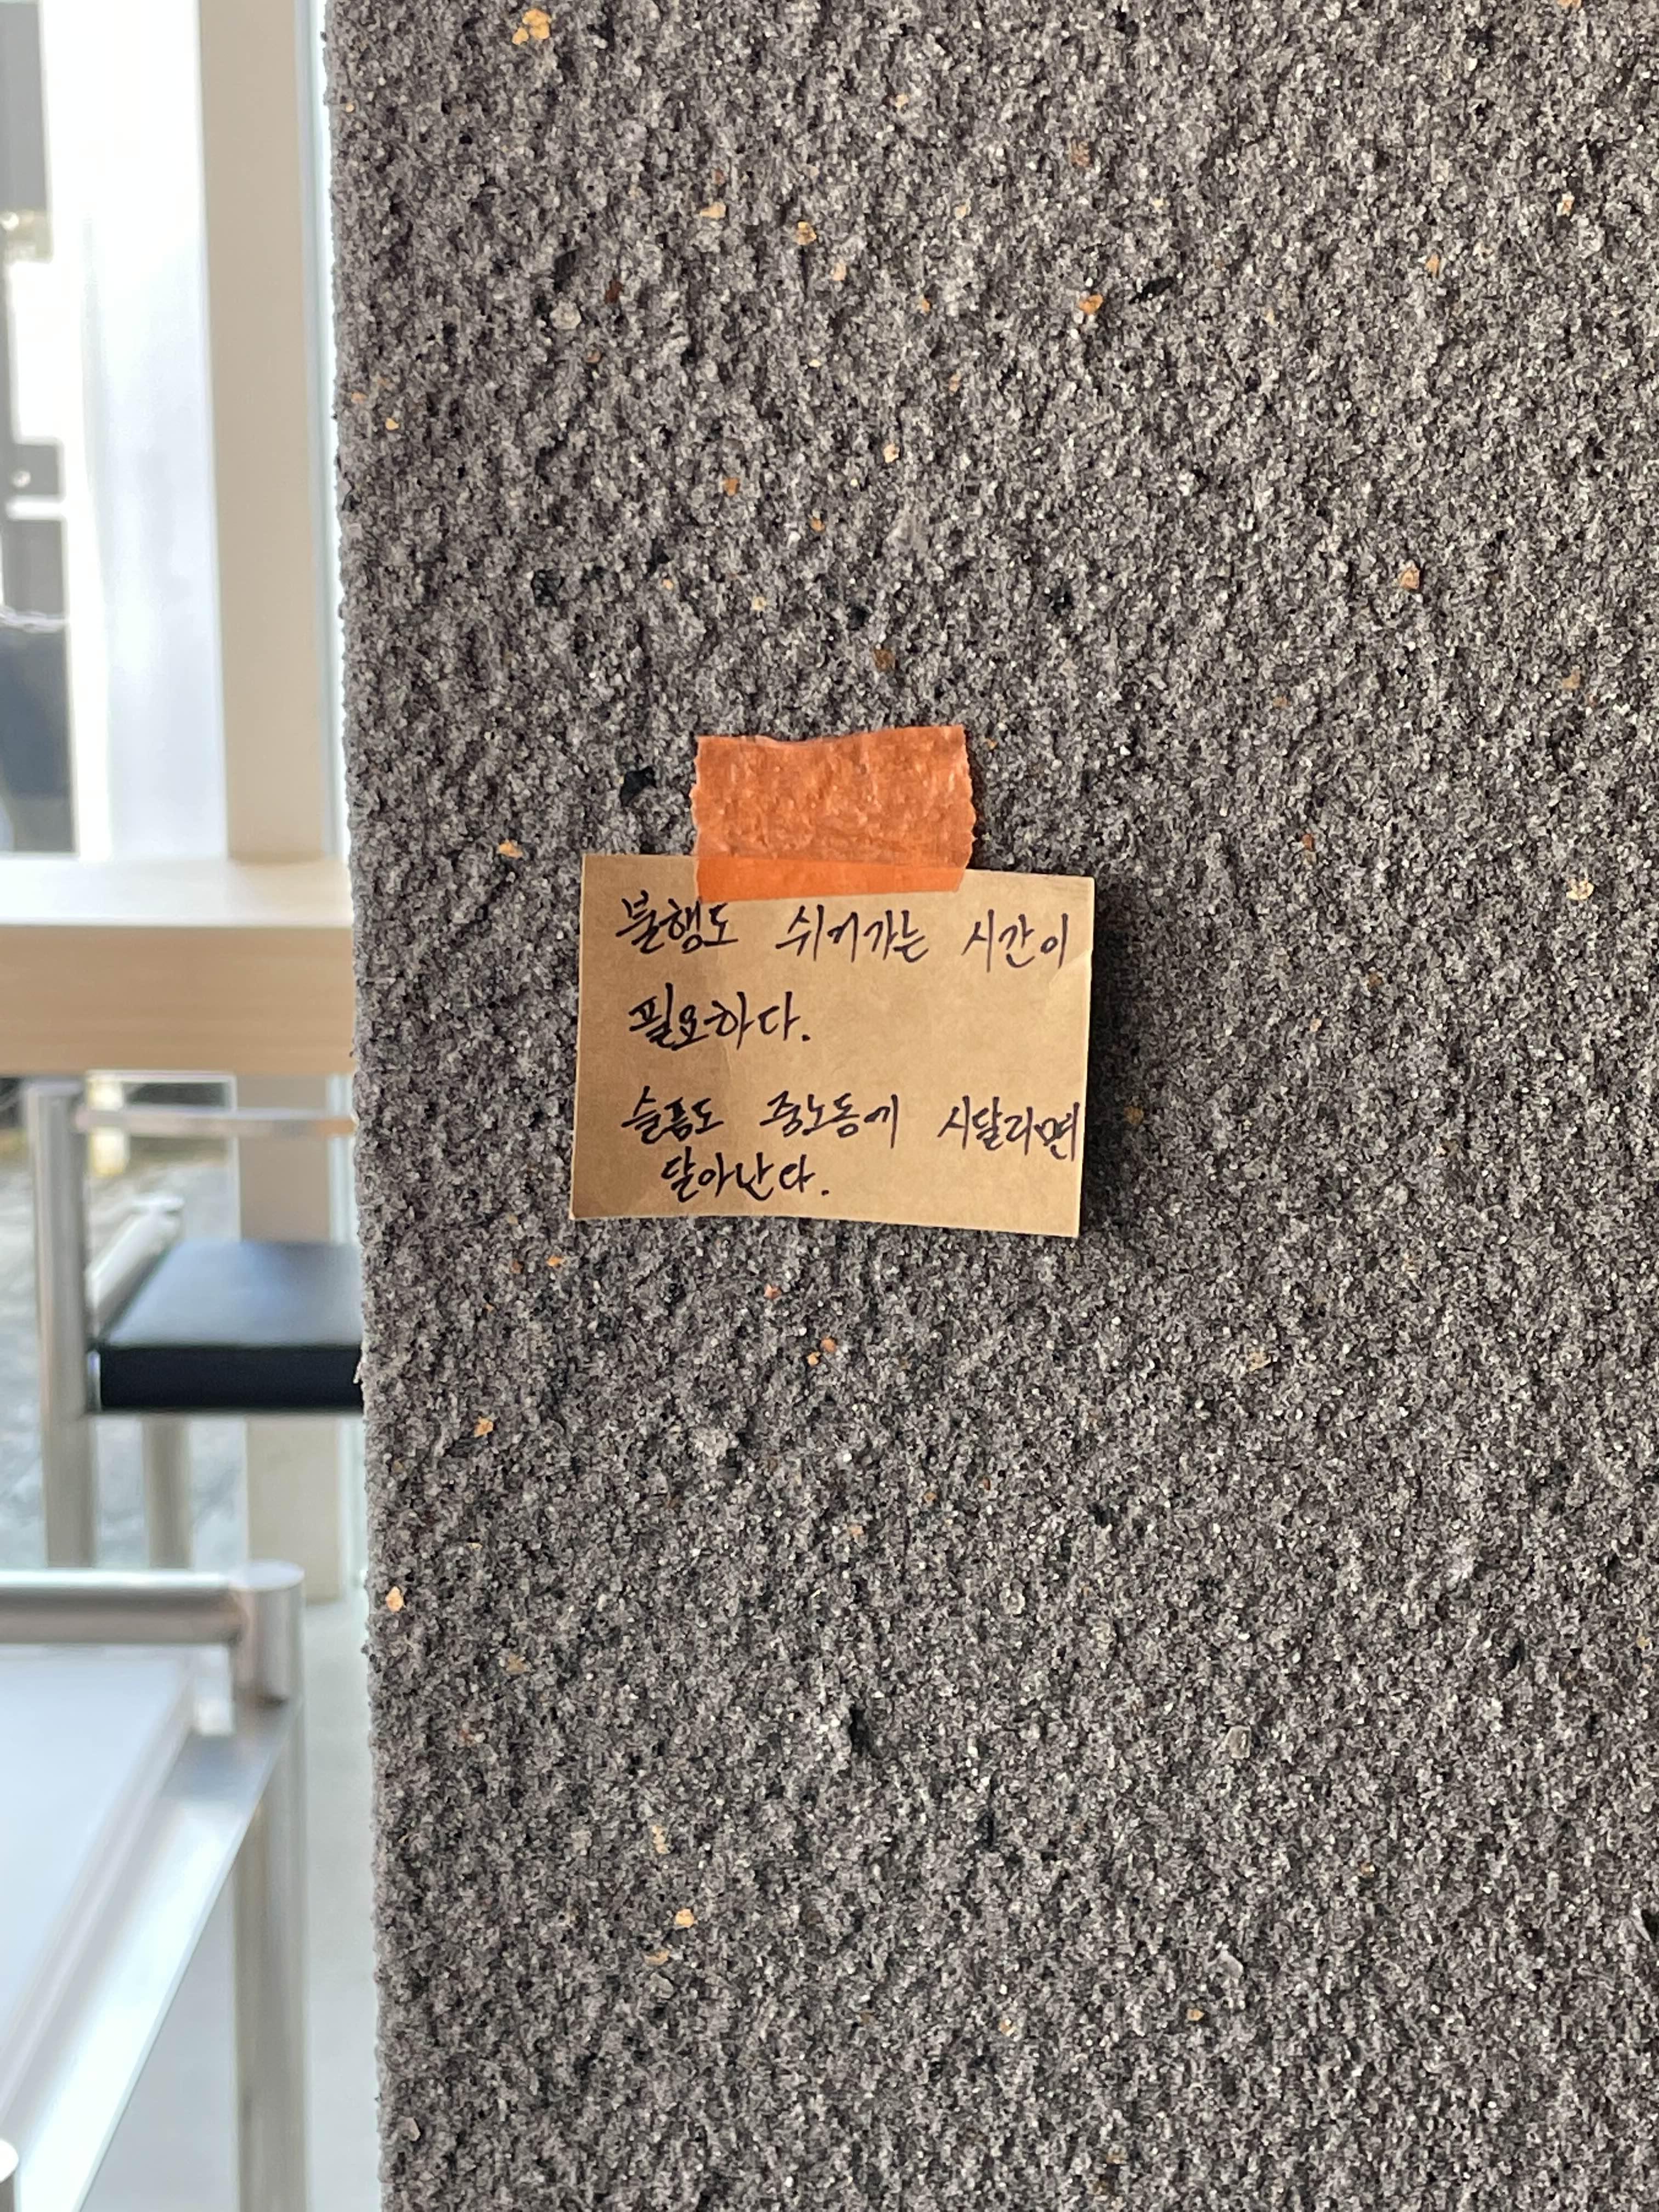 불행도 쉬어가는 시간이
필요하다.
슬픔도 중노동에 시달리면
달아난다.